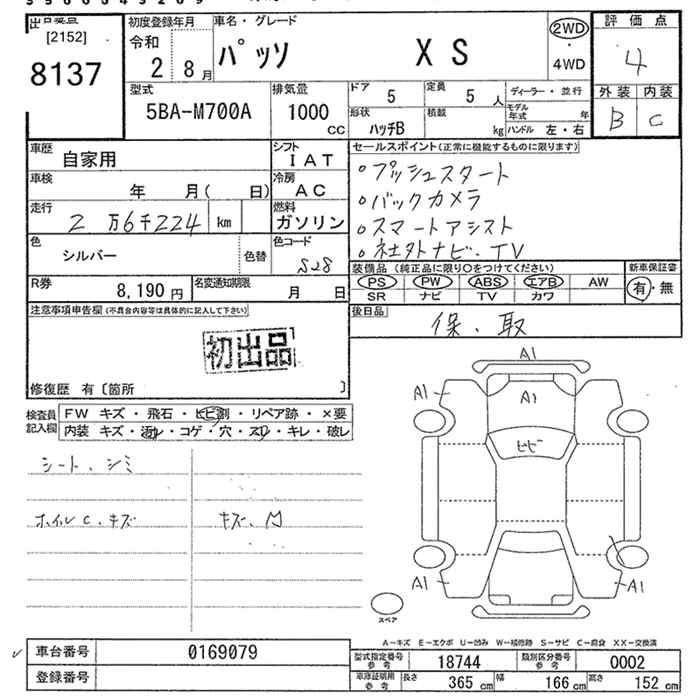 [2152]
8137
初度登録年月
令和
2 8月
車名・グレード
パッソ XS
2WD
・
4WD
評価点
4
外装 内装
B C
型式
5BA-M700A
排気量
1000
cc
ドア 5
定員 5人
ディーラー・並行
形状
ハッチB
積載
kg
モデル年式 年
ハンドル 左・右
車歴
自家用
シフト
IAT
車検
年 月( 日)
冷房
AC
走行
2万6千224 km
燃料
ガソリン
色
シルバー
色替
色コード
S28
R券
8,190円
名変通知期限
月 日
セールスポイント(正常に機能するものに限ります)
○プッシュスタート
○バックカメラ
○スマートアシスト
○社外ナビ、TV
装備品(純正品に限り○をつけてください)
新車保証書
PS PW ABS エアB AW
SR ナビ TV カワ
有・無
後日品
保、取
注意事項申告欄(不具合内容等は具体的に記入して下さい)
初出品
修復歴 有〔箇所 〕
検査員記入欄
FW キズ・飛石・ヒビ割・リペア跡・×要
内装 キズ・汚レ・コゲ・穴・スレ・キレ・破レ
シート、シミ
ホイルC、キズ
キズ、
A1
A1
A1
A1
ヒビ
A1
A1
スペア
A-キズ E-エクボ U-凹み W-補修跡 S-サビ C-腐食 XX-交換済
車台番号
0169079
登録番号
型式指定番号
参考
18744
類別区分番号
参考
0002
車庫証明用
参考
長さ 365cm
幅 166cm
高さ 152cm